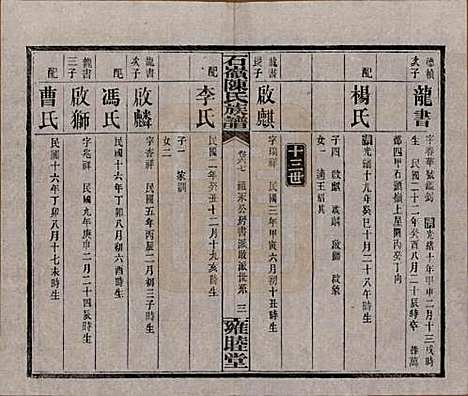 德楨
次子
龍書
字春華號鑑菊 清光緒十年甲申二月十三戌時生
民國二十二年癸酉八月二十辰時卒 葬萬
都四甲石頭嶺上星閣內癸丁向
配
楊氏
清光緒十九年癸巳十月二十八午時生
子四 啟麒 啟麟 啟獅
女 適王紹其
十三世
龍書
長子
啟麒
字瑞祥 民國三年甲寅六月初十丑時生
石嶺陳氏族譜
卷六七
三
雍睦堂
配
李氏
民國二年癸丑十二月十九亥時生
子一 家訓
女二
龍書
次子
啟麟
字香祥 民國五年丙辰二月初三子時生
配
馮氏
民國十六年丁卯八月初六酉時生
龍書
三子
啟獅
字兆祥 民國九年庚申二月二十四辰時生
配
曹氏
民國十六年丁卯八月十七未時生